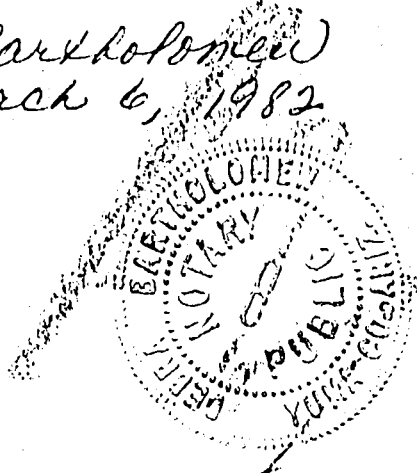 Bartholomew
March 6, 1982
DEBRA BARTHOLOMEW
NOTARY PUBLIC
YUMA CO. ARIZ.